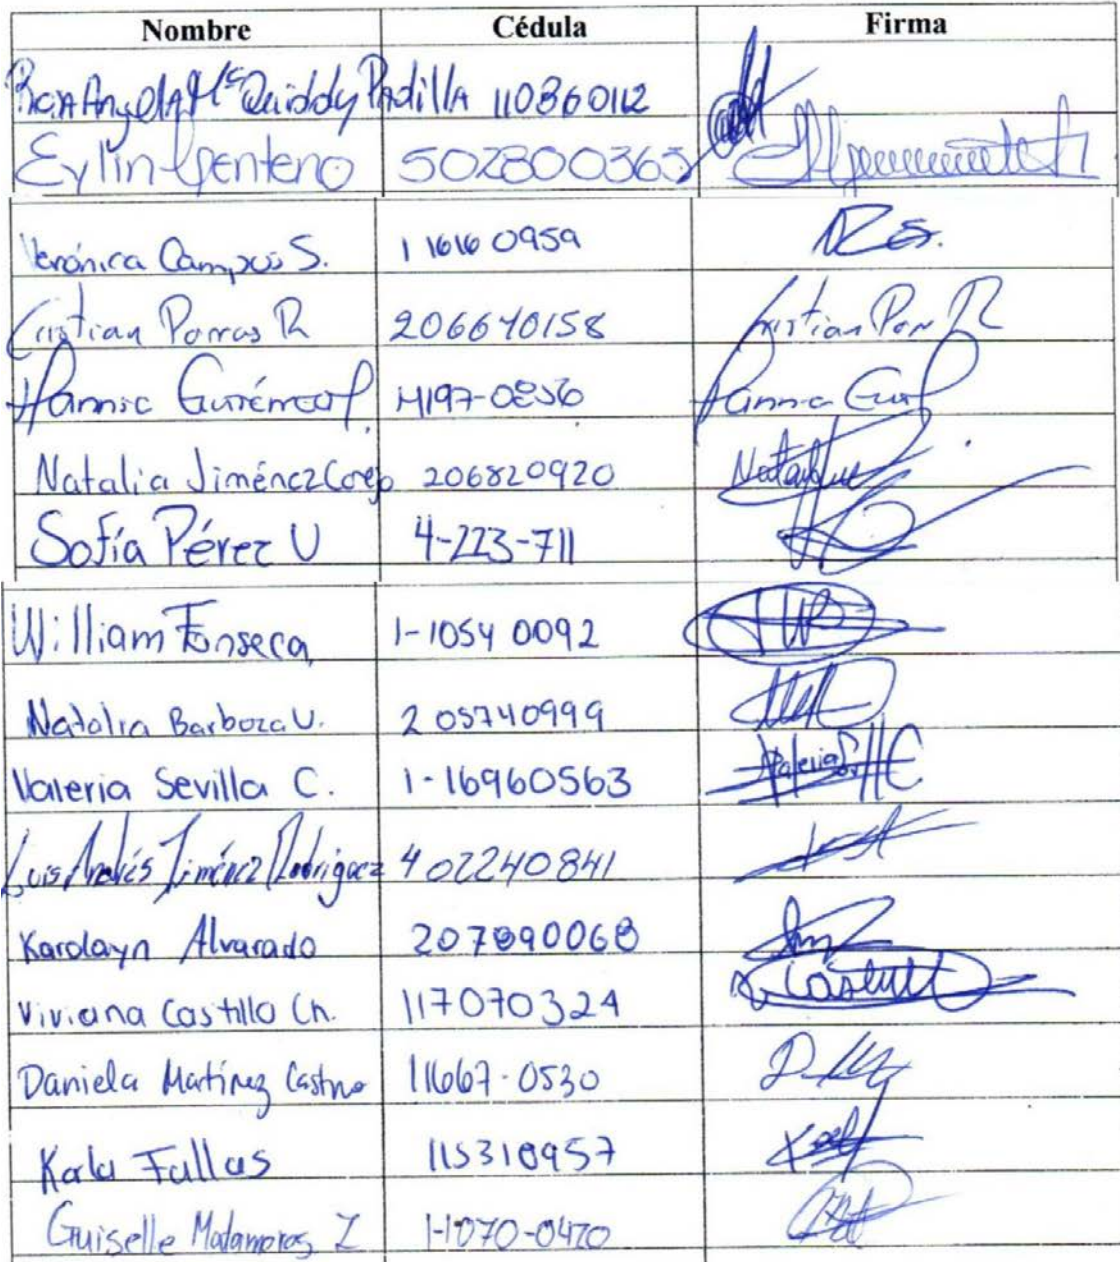 Nombre Cédula Firma
Angela Mc Quiddy Padilla 110860112
Eylin Zenteno 502800363
Verónica Campos S. 1 1616 0959
Cristian Porras R 206640158 Cristian Porr R
Hannia Gutiérrez P. 4197-0856 Hannia Gut P
Natalia Jiménez Corejo 206820920
Sofía Pérez U 4-223-711
William Fonseca 1-1054 0092
Natalia Barboza U. 2 05740999
Valeria Sevilla C. 1-16960563 Valeria Sevilla C
Luis Andrés Jiménez Rodríguez 4 02240841
Karolayn Alvarado 207890068
Viviana Castillo Ch. 117070324
Daniela Martínez Castro 11667-0530
Karla Fallas 115310957
Guiselle Matamoros Z 1-1070-0470